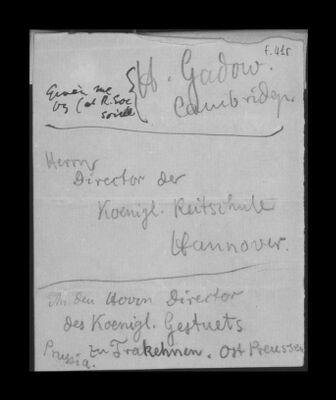 f. 415
Given me
by
at R. Soc
soirée
H. Gadow.
Cambridge.
Herrn
Director der
Koenigl. Reitschule
Hannover.
An den Herrn Director
des Koenigl. Gestuets
zu Trakehnen. Ost Preussen
Prussia.